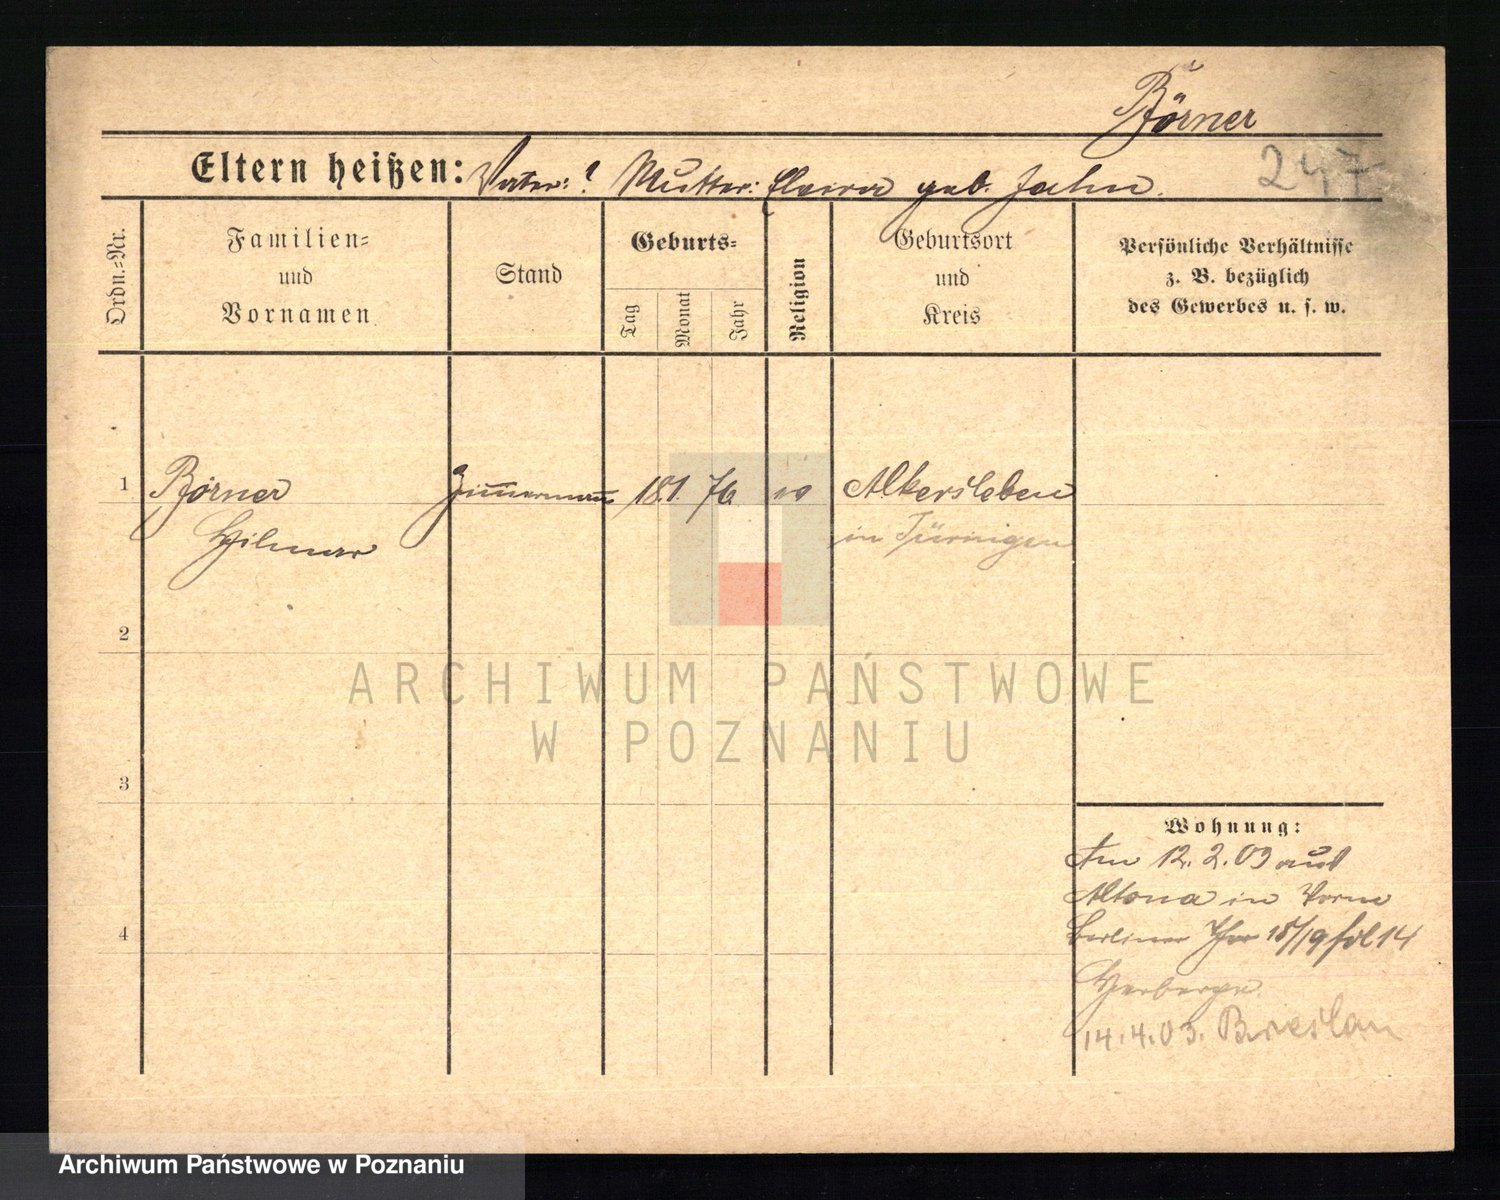 Börner
Eltern heißen: Vater: ? Mutter: Elvira geb. Jahn.
247
Ordn.-Nr.
Familien-
und
Vornamen
Stand
Geburts-
Tag
Monat
Jahr
Religion
Geburtsort
und
Kreis
Persönliche Verhältnisse
z. B. bezüglich
des Gewerbes u. s. w.
1 Börner Zimmermann 18.1. 76 ev Alkersleben
Hilmar in Türnigen
2
ARCHIWUM PAŃSTWOWE
W POZNANIU
3
Wohnung:
Am 12.2.03 aus
Altona in
4
Berliner Thor 18/19 fol 14
Herberge
14.4.03. Breslau
Archiwum Państwowe w Poznaniu